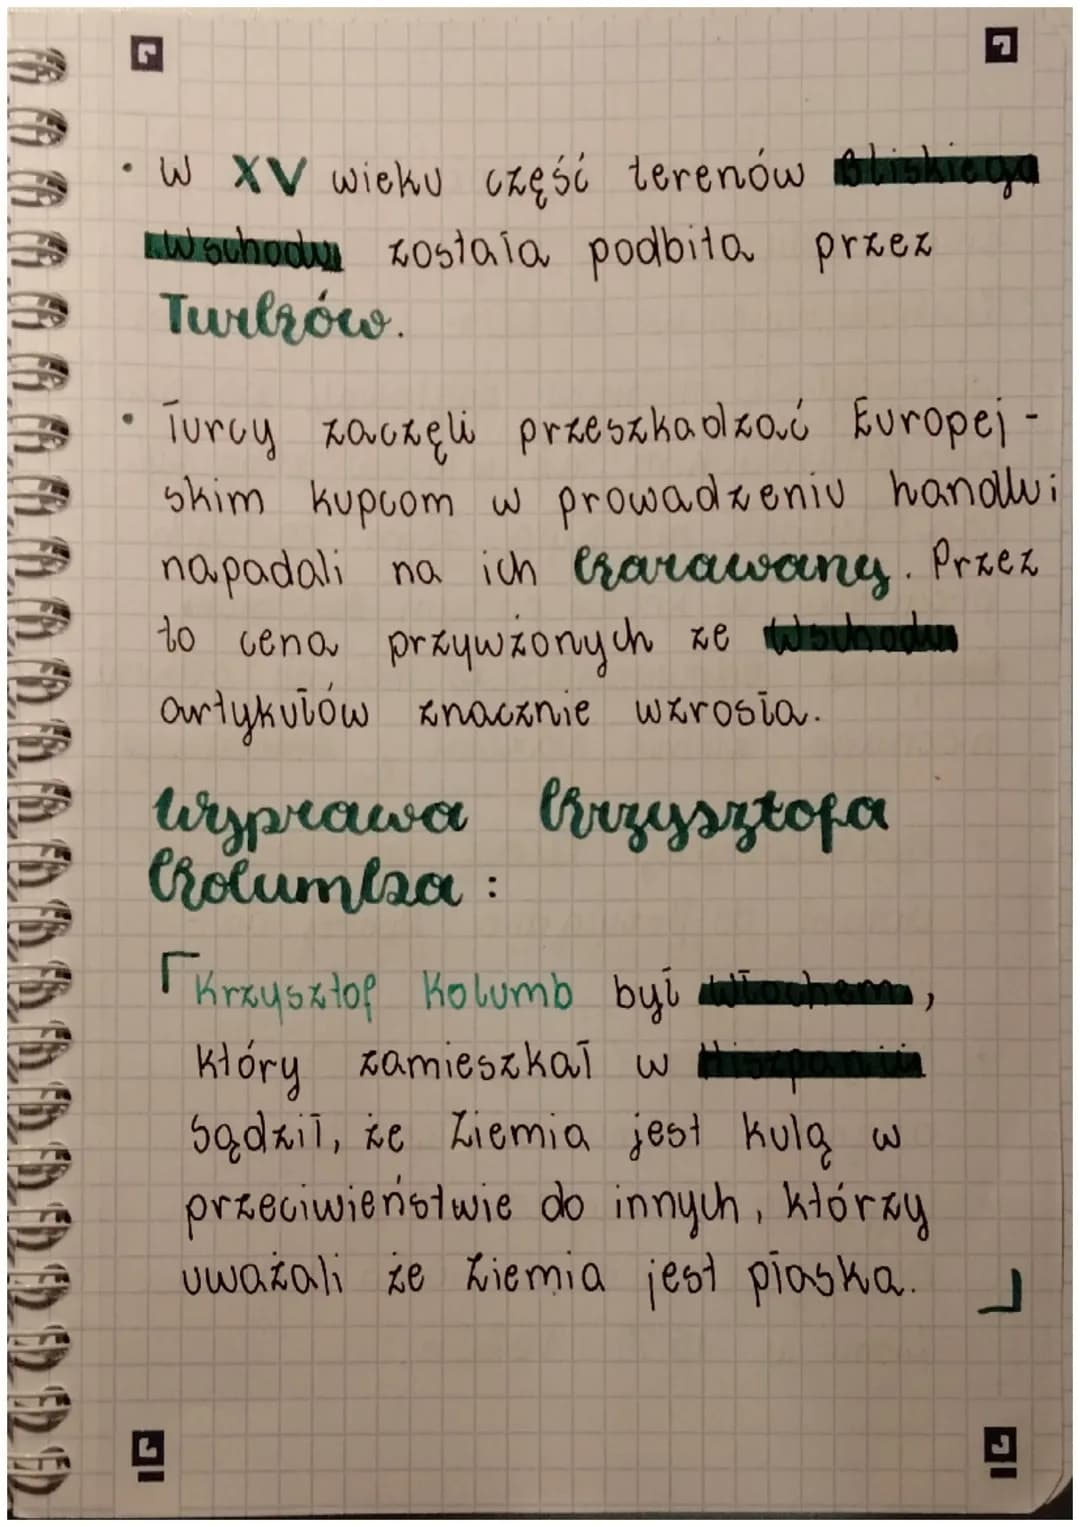 • W XV wieku część terenów Bliskiego
Wschodu została podbita przez
Turków.
• Turcy zaczęli przeszkadzać Europej-
skim kupcom w prowadzeniu handlu i
napadali na ich karawany. Przez
to cena przywżonych ze Wschodu
artykułów znacznie wzrosła.
Wyprawa Krzysztofa
Kolumba:
Krzysztof Kolumb był Włochem,
który zamieszkał w Hiszpanii
sądził, że Ziemia jest kulą w
przeciwieństwie do innych, którzy
uważali że Ziemia jest płaska.